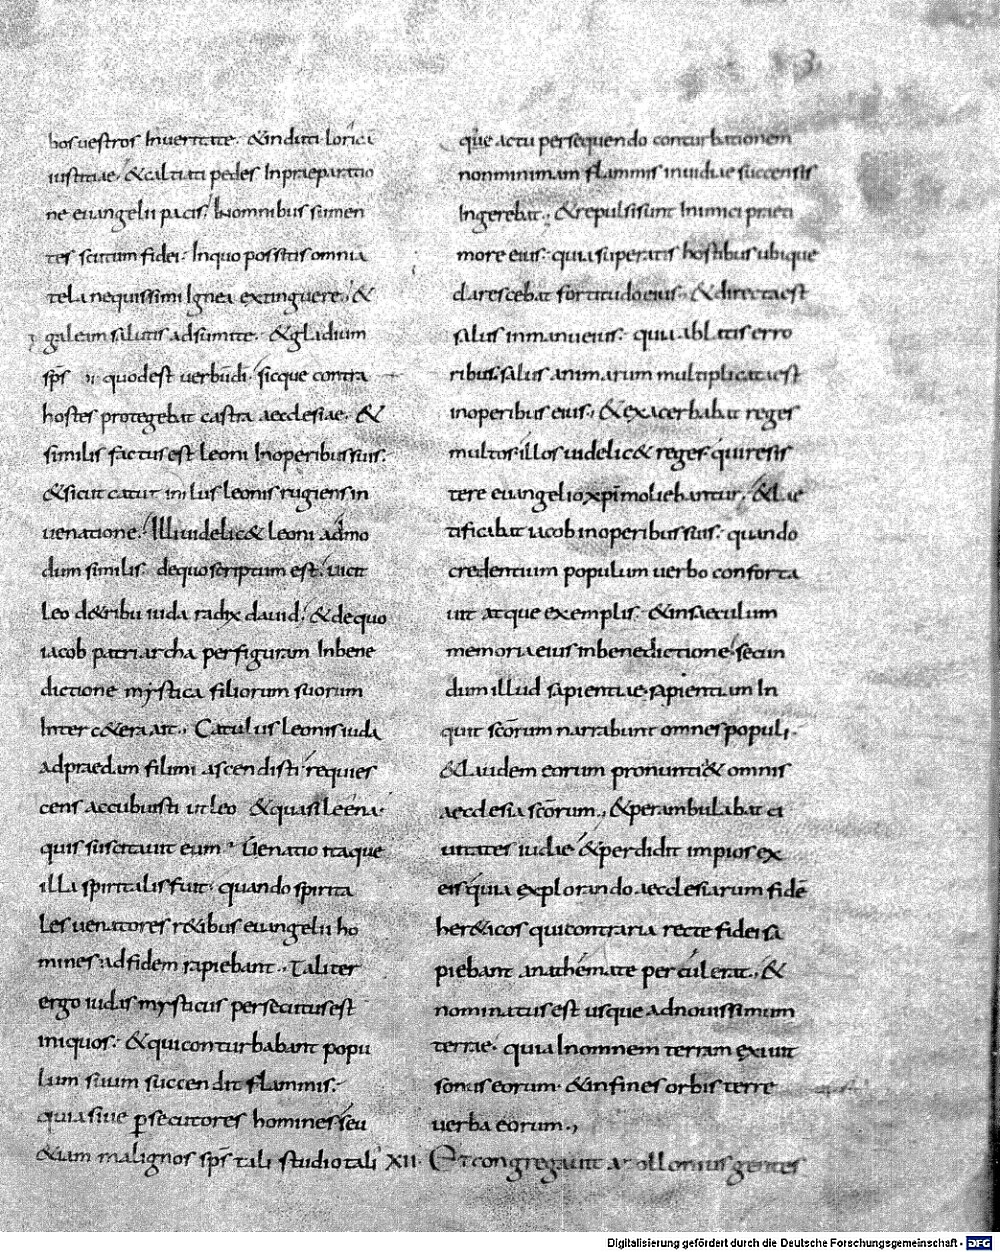 3
bos uestros Inueritate. &induti lorica
iustitiae. &calciati pedes Inpraeparatio
ne euangelii pacis. Inomnibus sumen
tes scutum fidei. Inquo possitis omnia
tela nequissimi Ignea extinguere. &
galeam salutis adsumite. &gladium
sps quodest uerbu di. sicque contra
hostes protegebat castra aecclesiae. &
similis factusest leoni Inoperibussuis.
&sicut catulus leonis rugiensin
uenatione. Illiuidelic& leoni admo
dum similis. dequoscriptum est. uicit
leo d&ribu iuda radix dauid. &dequo
iacob patriarcha perfiguram Inbene
dictione mystica filiorum suorum
Inter c&era ait. Catulus leonis iuda
adpraedam filimi ascendisti requies
cens accubuisti ut leo &quasi leena.
quis suscitauit eum? Uenatio itaque
illa spiritalis fuit. quando spirita
les uenatores r&ibus euangelii ho
mines adfidem rapiebant. Taliter
ergo iudas mysticus persecutusest
iniquos. &quiconturbabant popu
lum suum succendit flammis.
quiasiue psecutores homines seu
&iam malignos sps tali studio tali
que actu persequendo conturbationem
nonminimam flammis inuidiae succensis
Ingerebat. &repulsisunt Inimici prae a
more eius. quia superatis hostibus ubique
clarescebat fortitudo eius. &directaest
salus inmanueius. quia ablatis erro
ribus salus animarum multiplicataest
inoperibus eius. &exacerbabat reges
multos. illos uidelic& reges quiresis
tere euangelio xpi moliebantur. &lae
tificabat iacob inoperibus suis. quando
credentium populum uerbo conforta
uit atque exemplis. &insaeculum
memoriaeius inbenedictione. secun
dum illud sapientiae. sapientiam In
quit scorum narrabunt omnes populi.
&laudem eorum pronunti& omnis
aecclesia scorum. &perambulabat ci
uitates iudae &perdidit impios ex
eis quia explorando aecclesiarum fide
her&icos quicontraria recte fidei sa
piebant anathemate perculerat. &
nominatusest usque adnouissimum
terrae. quia Inomnem terram exiuit
sonus eorum. &infines orbis terre
uerba eorum.
XII. Et congregauit apollonius gentes
Digitalisierung gefördert durch die Deutsche Forschungsgemeinschaft - DFG